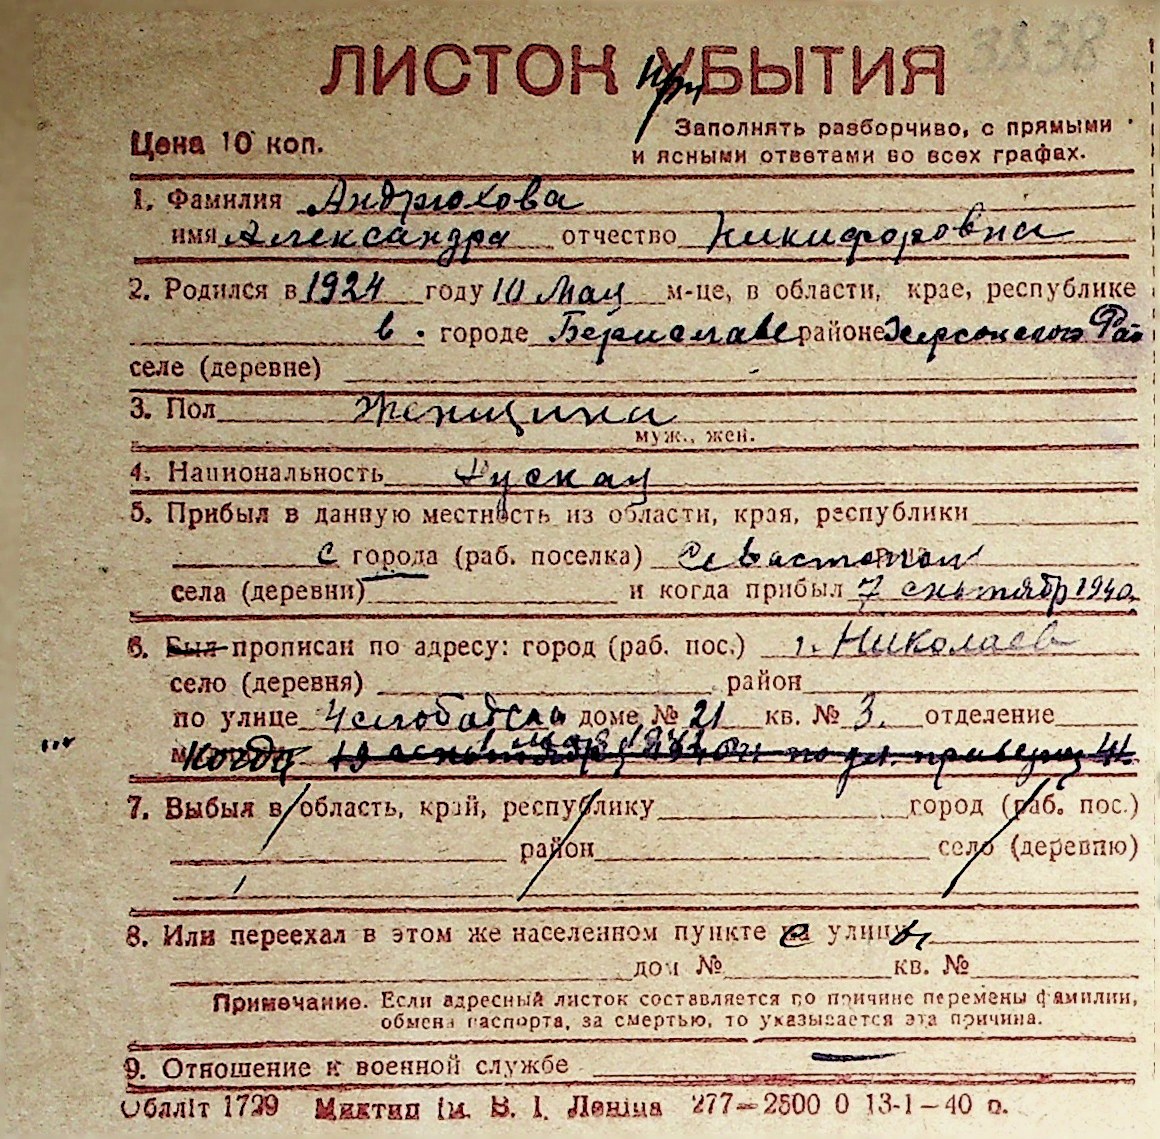 3838
ЛИСТОК при УБЫТИЯ
Цена 10 коп.
Заполнять разборчиво, с прямыми
и ясными ответами во всех графах.
1. Фамилия Андрюхова
имя Александра отчество Никифоровна
2. Родился в 1924 году 10 Мая м-це, в области, крае, республике
в городе Бериславе районе Херсонского Рай
селе (деревне)
3. Пол Женщина
муж., жен.
4. Национальность Руская
5. Прибыл в данную местность из области, края, республики
с города (раб. поселка) Севастополи
села (деревни) и когда прибыл 7 сентября 1940.
6. Был прописан по адресу: город (раб. пос.) г. Николаев
село (деревня) район
по улице 4 слободская доме № 21 кв. № 3. отделение
Когда
7. Выбыл в область, край, республику город (раб. пос.)
район село (деревню)
8. Или переехал в этом же населенном пункте с улицы
дом № кв. №
Примечание. Если адресный листок составляется по причине перемены фамилии,
обмена паспорта, за смертью, то указывается эта причина.
9. Отношение к военной службе —
Обллiт 1729 Миктип iм. В. I. Ленiна 277—2500 0 13-1—40 р.